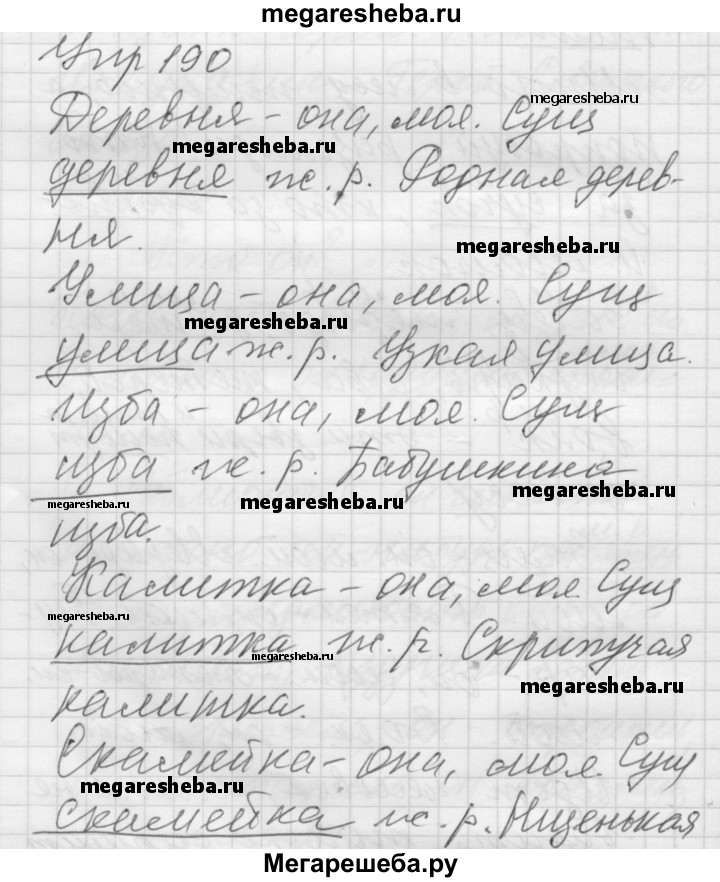 megaresheba.ru
Упр 190
megaresheba.ru
Деревня – она, моя. Сущ
megaresheba.ru
деревня ж. р. Родная дерев-
ня.
megaresheba.ru
Улица – она, моя. Сущ
megaresheba.ru
улица ж. р. Узкая улица.
Изба – она, моя. Сущ
изба ж. р. Бабушкина
megaresheba.ru
megaresheba.ru
megaresheba.ru
изба.
Калитка – она, моя. Сущ
megaresheba.ru
калитка ж. р. Скрипучая
megaresheba.ru
megaresheba.ru
калитка.
Скамейка – она, моя. Сущ
megaresheba.ru
скамейка ж. р. Низенькая
Мегарешеба.ру